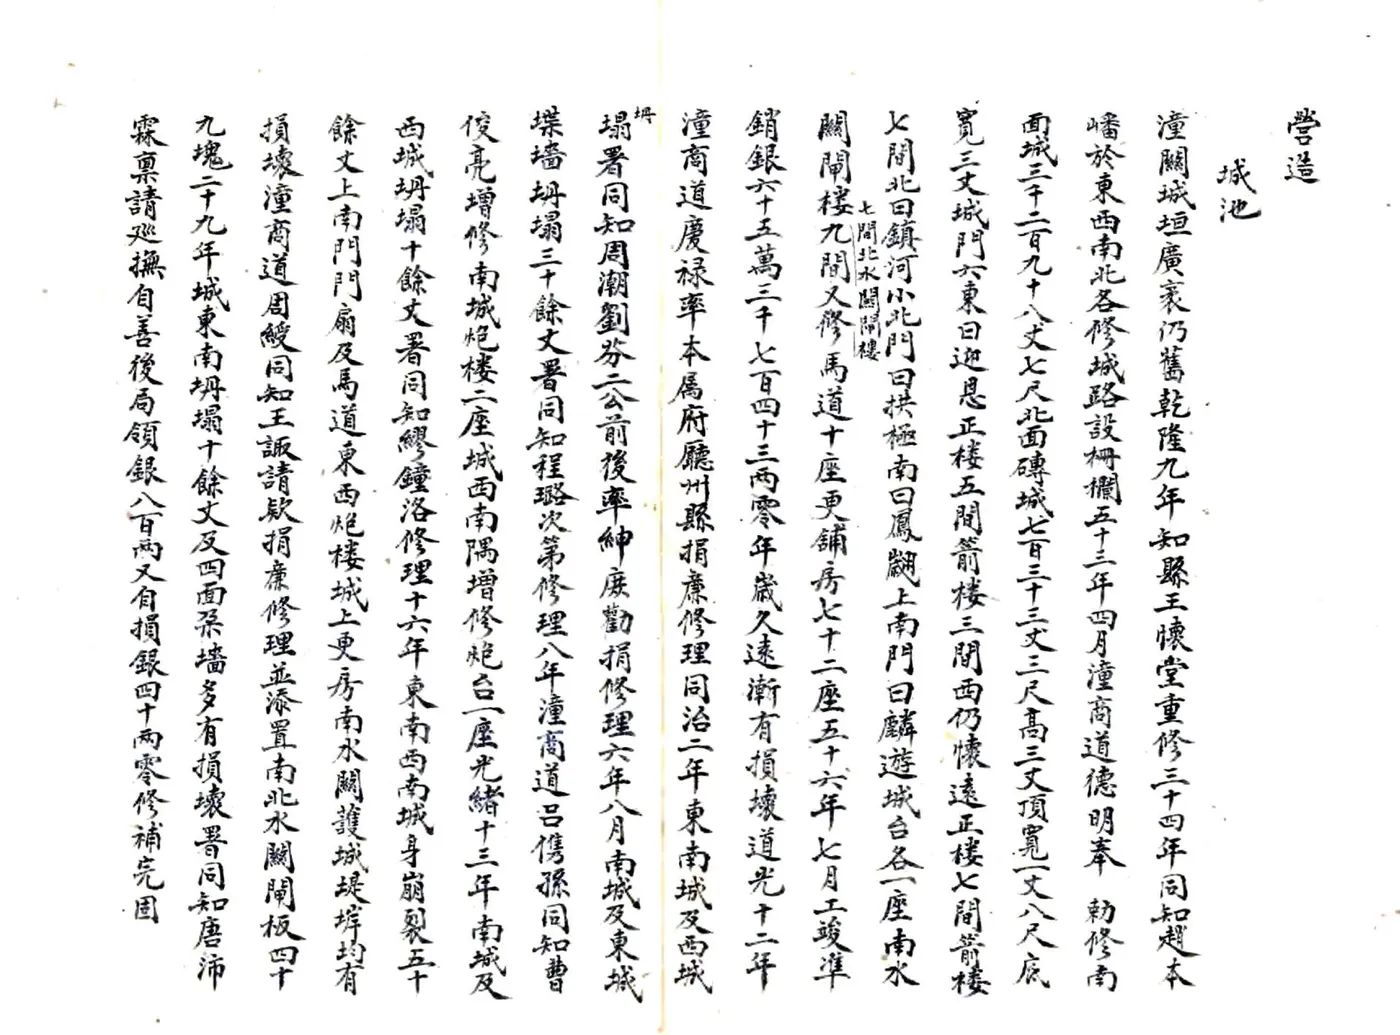 營造
城池
潼關城垣廣袤仍舊乾隆九年知縣王懷堂重修三十四年同知趙本
嶓於東西南北各修城路設柵欄五十三年四月潼商道德明奉 勅修南
面城三千二百九十八丈七尺北面磚城七百三十三丈三尺高三丈頂寬一丈八尺底
寬三丈城門六東曰迎恩正楼五間箭楼三間西仍懷遠正楼七間箭楼
七間北曰鎮河小北門曰拱極南曰鳳翽上南門曰麟遊城台各一座南水
七間北水關閘樓
關閘楼九間又修馬道十座更舖房七十二座五十六年七月工竣准
銷銀六十五萬三千七百四十三两零年歲久遠漸有損壞道光十二年
潼商道慶禄率本属府廳州縣捐亷修理同治二年東南城及西城
坍
塌署同知周潮劉芬二公前後率紳庶勸捐修理六年八月南城及東城
堞墻坍塌三十餘丈署同知程璐次第修理八年潼商道吕儁孫同知曹
俊亮增修南城炮楼二座城西南隅增修炮台一座光緒十三年南城及
西城坍塌十餘丈署同知繆鐘洛修理十六年東南西南城身崩裂五十
餘丈上南門門扇及馬道東西炮楼城上更房南水關護城堤垾均有
損壞潼商道周綬同知王諏請欵捐亷修理並添置南北水關閘板四十
九塊二十九年城東南坍塌十餘丈及四面朶墻多有損壞署同知唐沛
霖禀請廵撫自善後局領銀八百两又自損銀四十两零修補完固